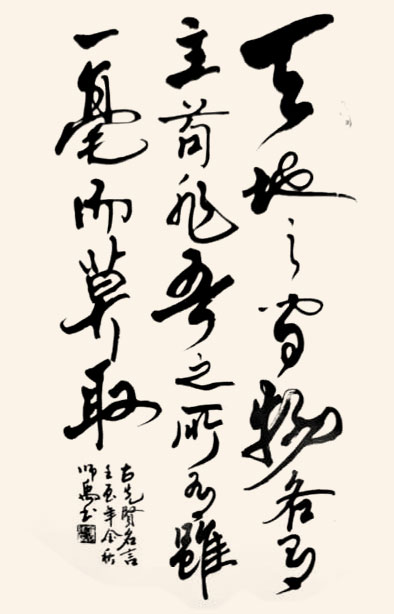 天地之间物各有
主苟非吾之所有雖
一毫而莫取
古先賢名言
年金秋
师禹书